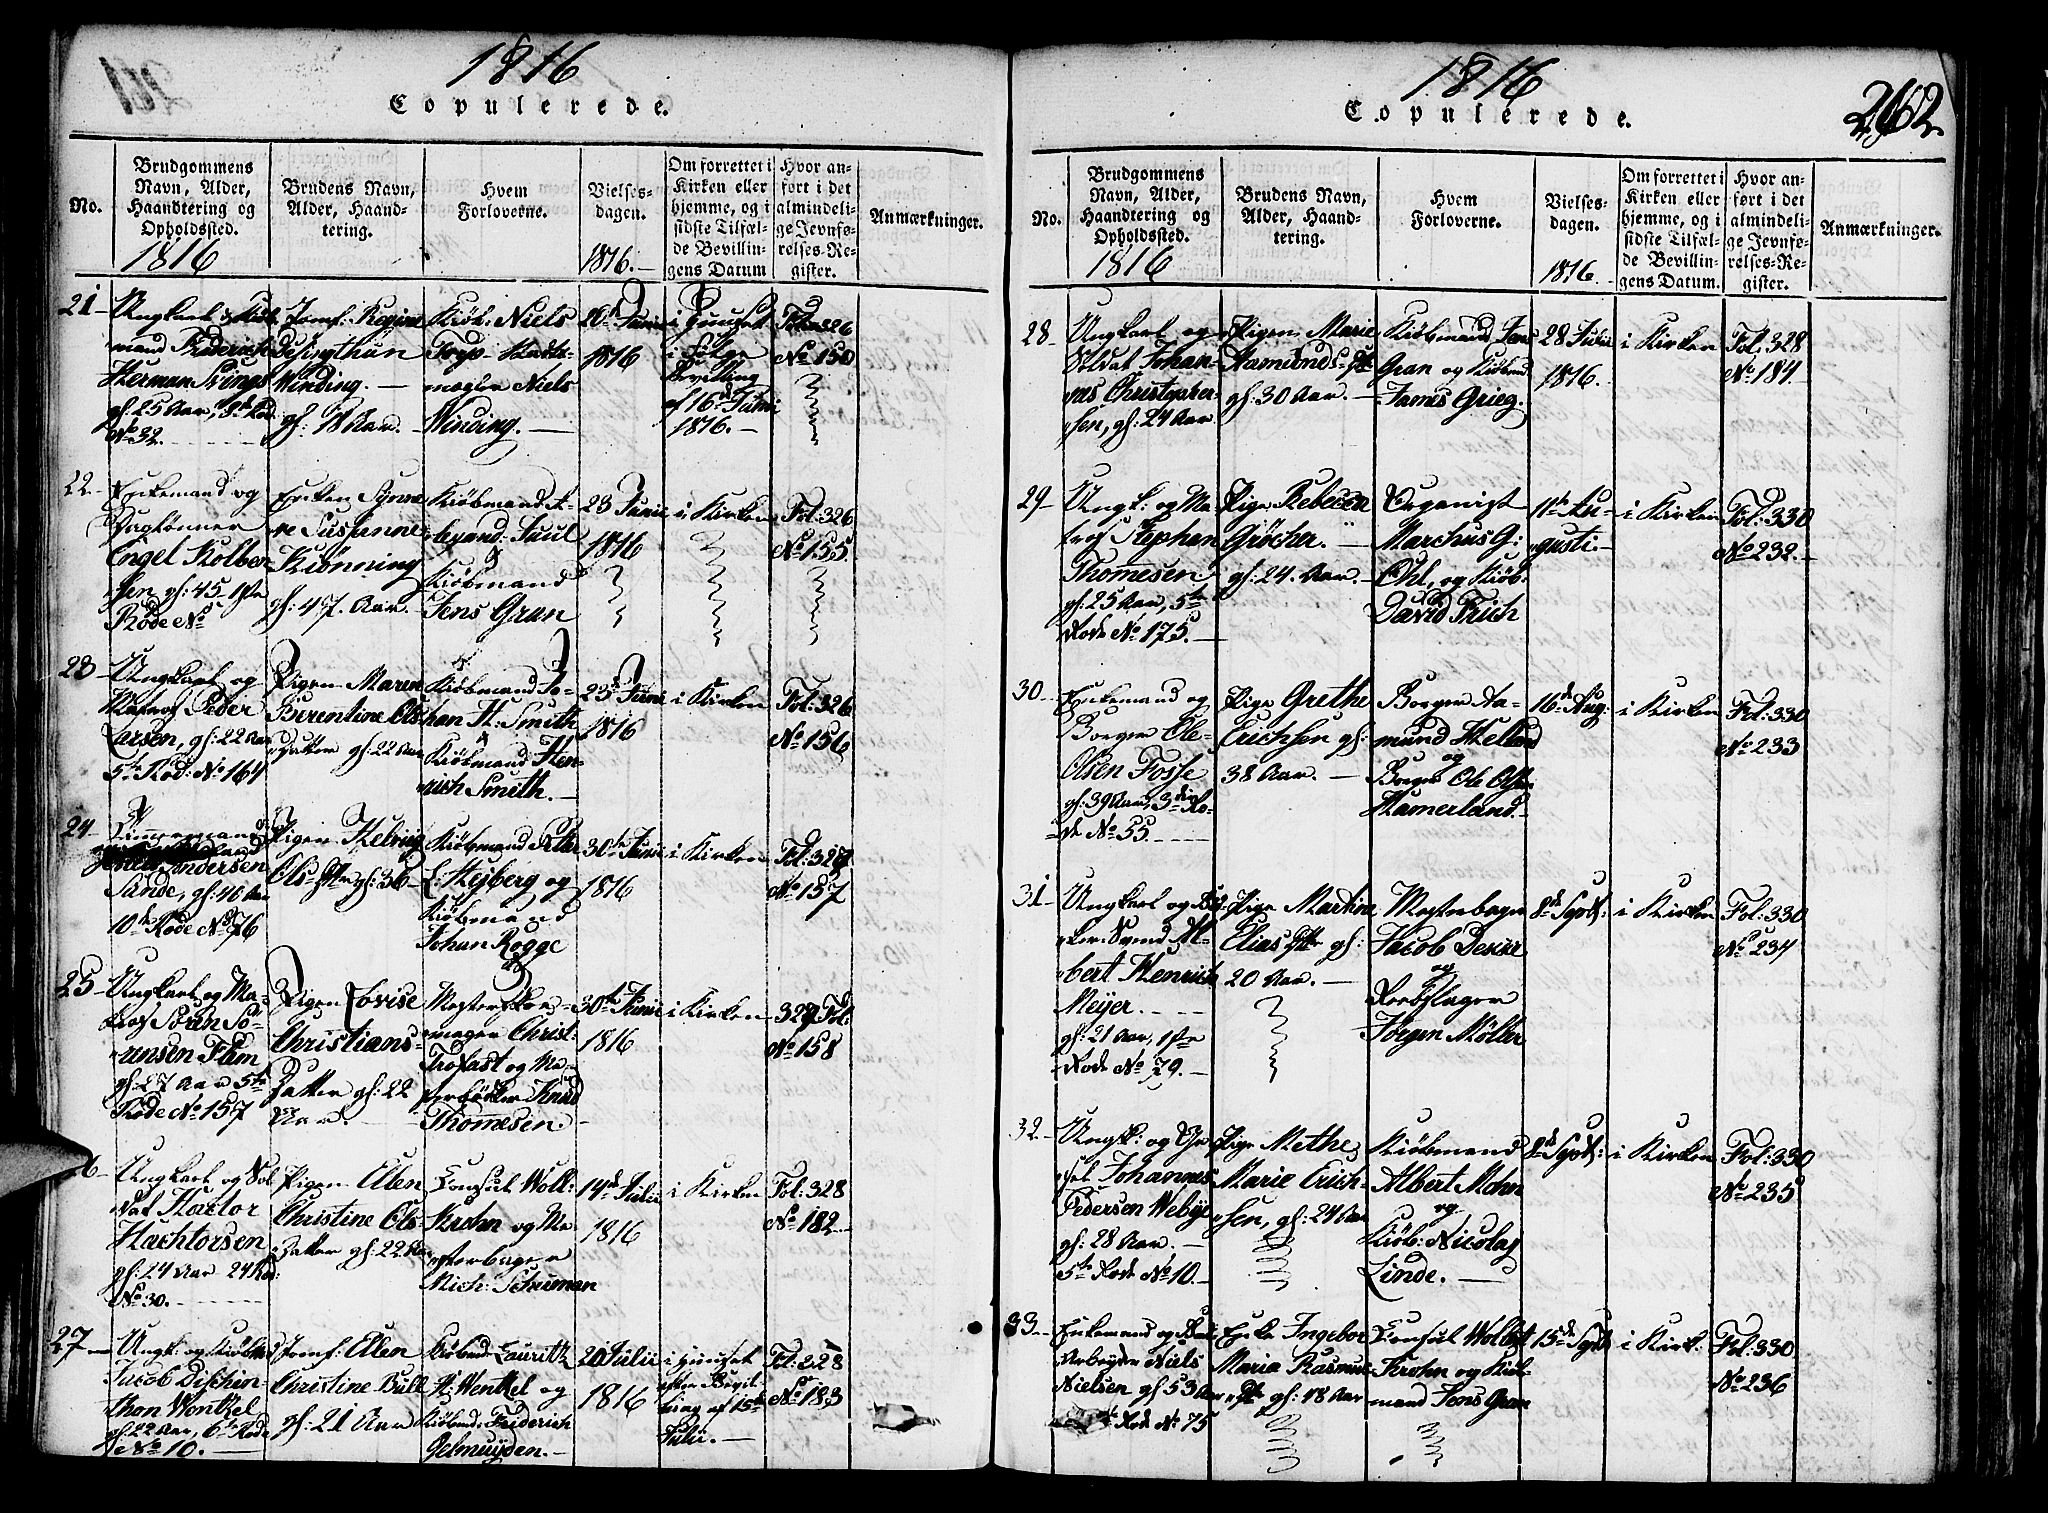 1816
Copulerede.
No.
Brudgommens
Navn, Alder,
Haandtering og
Opholdssted.
1816
Brudens Navn,
Alder, Haand-
tering.
Hvem
Forloverne.
Vielses-
dagen.
1816.
Om forrettet i
Kirken eller
hjemme, og i
sidste Tilfæl-
de Bevillin-
gens Datum
Hvor an-
ført i det
almindeli-
ge Jevnfø-
relses-Re-
gister.
Anmærkninger.
21
Ungkarl
mand Friderich
Herman
gl: 25 Aar,
No 32.
Jomf: Regine
Winding.
gl: 18 Aar.
Kiøb: Niels
mægler Niels
Winding.
20de Junii
1816
i Huuset
i Følge
Bevilling
af 16de Junii
1816.
Fol: 326
No 150
22
Enkemand og
Engel Kolben-
sen, gl: 45, 1ste
Rode No
Enken Synne-
ve Susanne
Kiønning
gl: 47. Aar.
Kiøbmand
Juul
Kiøbmand
Jens Gran
23 Junii
1816
i Kirken
Fol: 326
No 155
23
Ungkarl og
Matros Peder
Larsen, gl: 22 Aar
5te Rod: No 164
Pigen Maren
Berentine Ols
Datter gl: 22 Aar
Kiøbmand Jo-
han H: Smith
Kiøbmand Hen-
rich Smith.
23 Junii
1816
i Kirken
Fol: 326
No 156
24
Andersen
Sunde, gl: 40 Aar
10de Rode No 76
Pigen Helvig
Ols Dtr gl: 36
Kiøbmand Petter
L. Hejberg og
Kiøbmand
Johan Rogge
30te Junii
1816
i Kirken
Fol: 327
No 157
25
Ungkarl og Ma-
tros Søren Sø-
rensen Flim
gl: 27 Aar 5te
Rode No 157
Pigen Lovise
Christians-
Datter gl: 22
Aar.
Mesterskoe-
mager Christ:
Trofast og Me-
sterbødker Knud
Thomesen.
30te Junii
1816
i Kirken
327 Fol:
No 158
26
Ungkarl og Sol-
dat Hactor
Hachtorsen
gl: 24 Aar 24 Rod:
No 30.
Pigen Elen
Christine Ols
Datter gl: 22 Aar
Consul Woll:
Krohn og Me-
sterbager
Mich: Schuman
14de Julii
1816
i Kirken
Fol: 328
No 182
27
Ungk: og Kiøbmd
Jacob Dischin-
thon Wenkel
gl 22 Aar, 6te Rode
No 10.
Jomf: Elen
Christine Bull
gl: 21 Aar
Kiøbmd: Lauritz
H: Wenkel og
Kiøbmd: Friderich
Gelmuyden.
20 Julii
1816
i Huuset
efter Bevil-
ling af 15de
Julii.
Fol: 328
No 183
1816
Copulerede.
262
No.
Brudgommens
Navn, Alder,
Haandtering og
Opholdssted.
1816
Brudens Navn,
Alder, Haand-
tering.
Hvem
Forloverne.
Vielses-
dagen.
1816.
Om forrettet i
Kirken eller
hjemme, og i
sidste Tilfæl-
de Bevillin-
gens Datum.
Hvor an-
ført i det
almindeli-
ge Jevnfø-
relses-Re-
gister.
Anmærkninger.
28
Ungkarl og
Soldat Johan-
nes Christopher-
sen, gl: 24 Aar
Pigen Marie
Aamunds Dt
gl: 30 Aar.
Kiøbmand Jens
Gran og Kiøbmd
James Grieg.
28 Julii
1816.
i Kirken
Fol: 328
No 184.
29
Ungk: og Ma-
tros Stephan
Thomesen
gl: 25 Aar, 5te
Rode No 175.
Pige Rebecca
Grøcher.
gl: 24. Aar.
Organist
Marchus G:
Ohl, og Kiøb:
David Frich
11te Au-
gusti.
i Kirken
Fol: 330
No 232.
30
Enkemand og
Borger Ole
Olsen Fosse
gl: 39 Aar, 3die Ro-
de No 55.
Pige Grethe
Erichsen gl:
38 Aar.
Borger Aa-
mund Helland
og
Borger Ole Olsen
Hamerland.
16de Aug:
i Kirken
Fol: 330
No 233
31
Ungkarl og
Svend Al-
bert Henrich
Meyer.
gl: 21 Aar, 1ste
Rode No 79.
Pige Martine
Elias Dtr gl:
20 Aar.
Mesterbager
Jacob
og
Reebslager
Jørgen Møller
8de Septb:
i Kirken
Fol: 330
No 234
32
Ungk: og
Johannes
Pedersen Webye
gl: 28 Aar.
5te Rode No 10.
Pige Methe
Marie Erich-
sen, gl: 24 Aar
Kiøbmand
Albert Mohn
og
Kiøb: Nicolay
Linde.
8de Septb:
i Kirken
Fol: 330
No 235
33
Enkemand og
Arbeyder Niels
Nielsen gl 53 Aar
Rode No 75
Enke Ingebor
Maria Rasmus
Dt gl: 48 Aar
Consul Wolert
Krohn og Kiøb-
mand Jens Gran
15de Septb
i Kirk:
Fol: 330
No 236